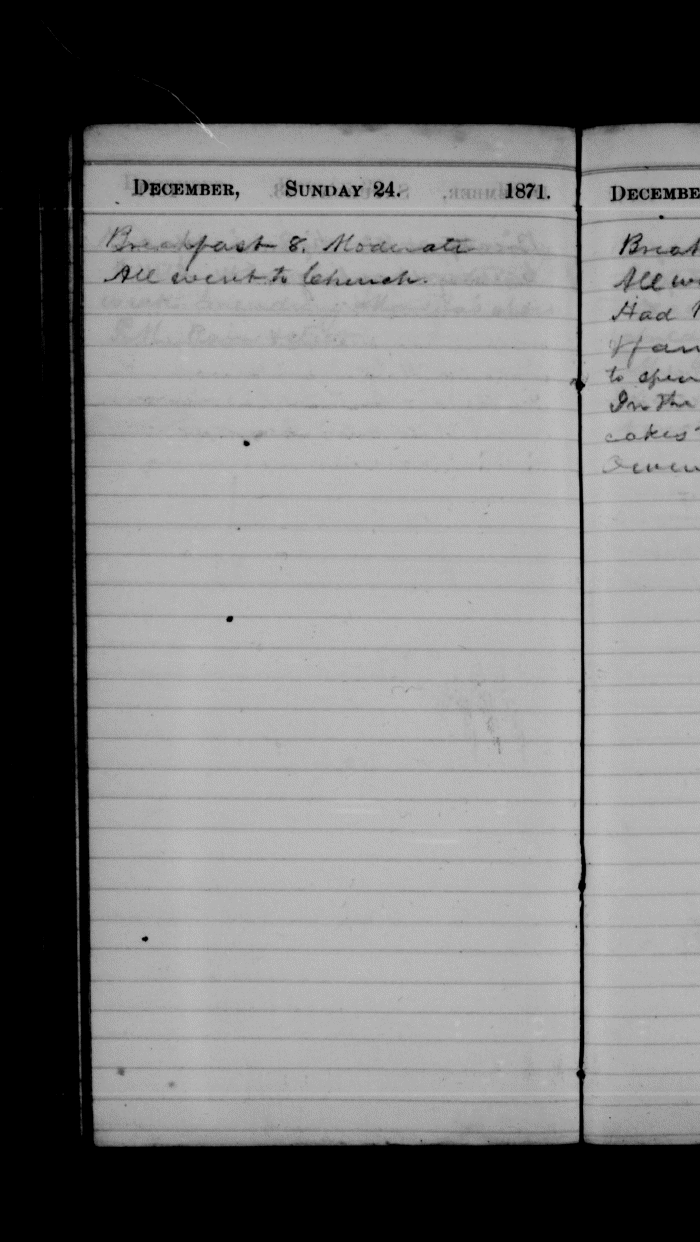 DECEMBER, SUNDAY 24. 1871.
Breakfast 8. Moderate
All went to Church.
DECEMBE
Break
All we
Had
to spen
In the
cakes